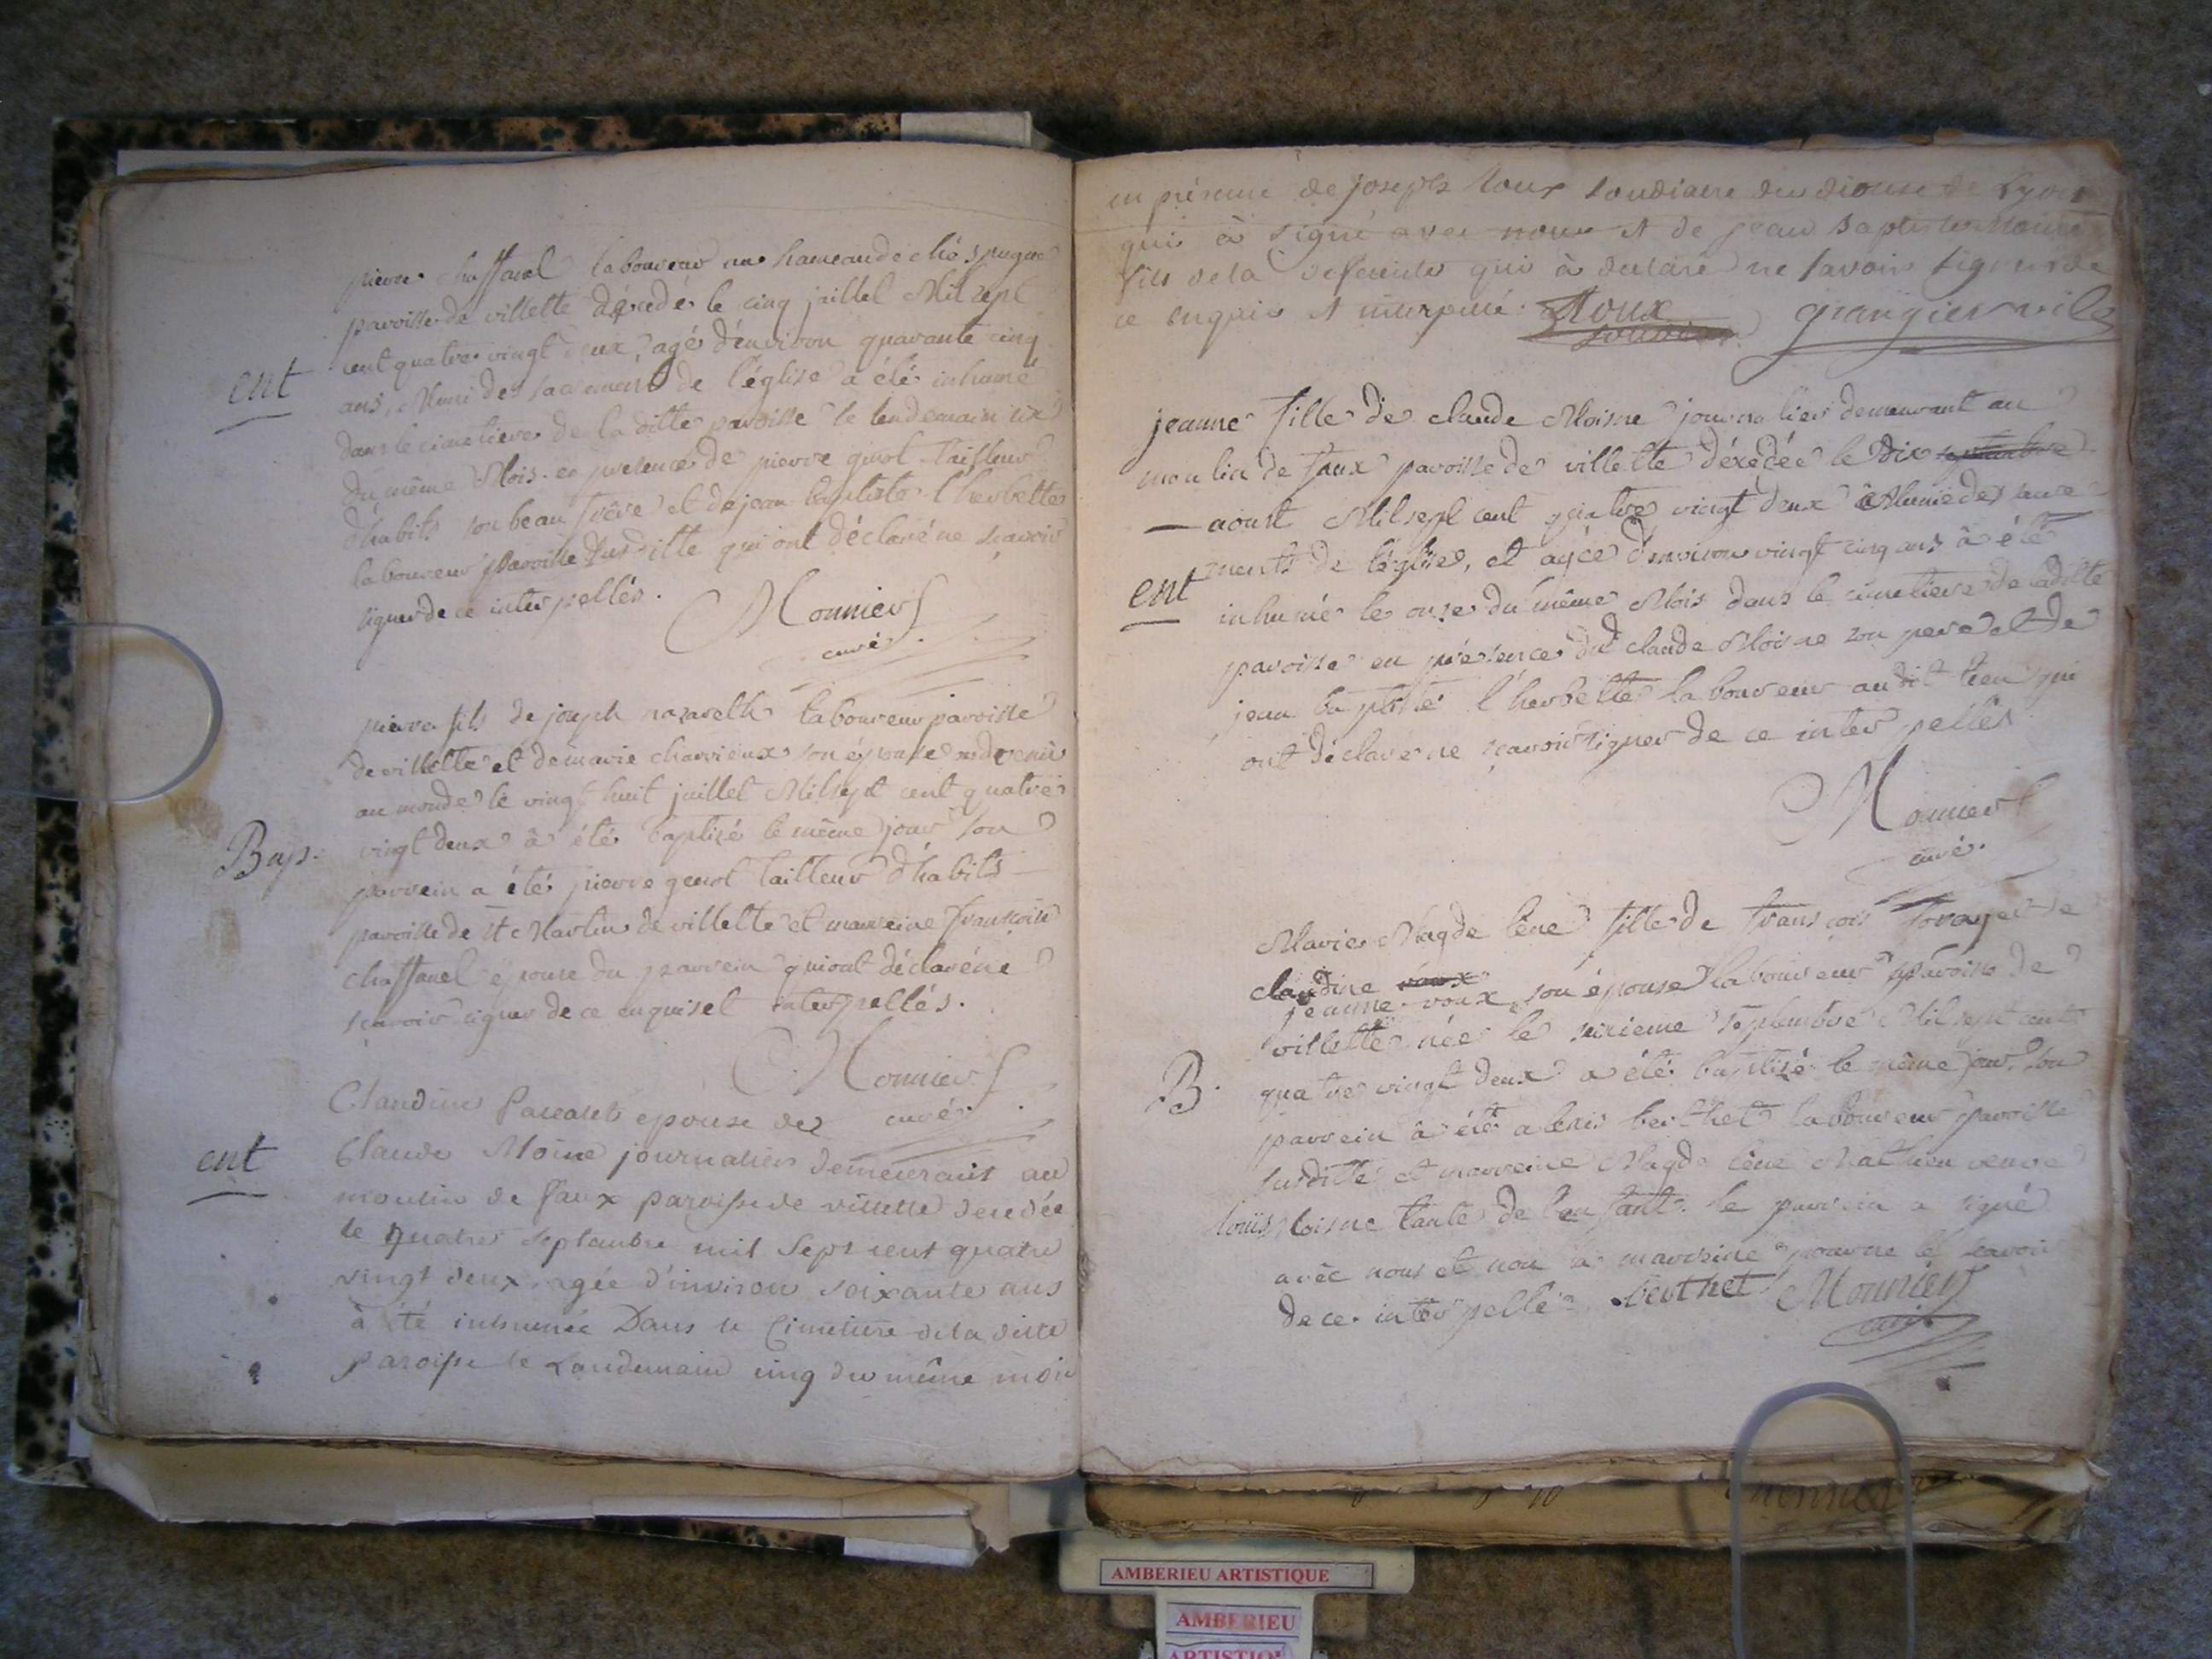 pierre chaffanel laboureur au hameau de
paroisse de villette décédé le cinq juillet Mil sept
cent quatre vingt deux, agé d'environ quarante cinq
ent
ans, Muni des sacrements de l'église a été inhumé
dans le cimetiere de la ditte paroisse le lendemain six
du même Mois. en presence de pierre guiot tailleur
d'habits son beau frère et de jean baptiste l'herbette
laboureur paroisse susditte qui ont déclaré ne scavoir
signer de ce interpellés.
Monnier
curé.
pierre fils de joseph nazareth laboureur paroisse
de villette et de marie charvieux son épouse venu
au monde le vingt huit juillet Mil sept cent quatre
Bap.
vingt deux à été baptisé le même jour son
parrein a été pierre guiot tailleur d'habits
paroisse de st Martin de villette et marreine françoise
chaffanel épouse du parrein qui ont déclaré ne
scavoir signer de ce enquis et interpellés.
Monnier
curé.
Claudine epouse de
ent
Claude Moine journalier demeurant au
moulin de faux paroisse de villette decedée
le quatre septembre mil sept cent quatre
vingt deux, agée d'environ soixante ans
à été inhumée Dans le Cimetiere de la ditte
paroisse le Landemain cinq du même mois
en présence de joseph Roux soudiacre du diocese de Lyon
qui à signé avec nous et de jean baptiste Moine
fils de la deffuncte qui à declaré ne savoir signer de
ce enquis et interpellé. Roux
soudiacre
jeanne fille de claude Moisne journalier demeurant au
moulin de faux paroisse de villette décédée le dix septembre
aoust Mil sept cent quatre vingt deux Munie des sacre
ments de l'église, et agée d'environ vingt cinq ans à été
ent
inhumé le onze du même Mois dans le cimetiere de la ditte
paroisse en présence du claude Moisne son pere et de
jean baptiste l'herbette laboureur au dit lieu qui
ont déclaré ne scavoir signer de ce interpellés.
Monnier
curé.
Marie Magdelene fille de françois
claudine roux
jeanne roux son épouse laboureur paroisse de
villette née le sixieme septembre Mil sept cent
B.
quatre vingt deux a été baptisé le même jour. son
parrein à été alexis berthet laboureur paroisse
susditte et marreine Magdelene Mathieu veuve
louis Moisne tante de l'enfant. le parrein a signé
avec nous et non la marreine pour ne le scavoir
de ce interpellé. berthet Monnier
curé
AMBERIEU ARTISTIQUE
AMBERIEU
ARTISTIQUE